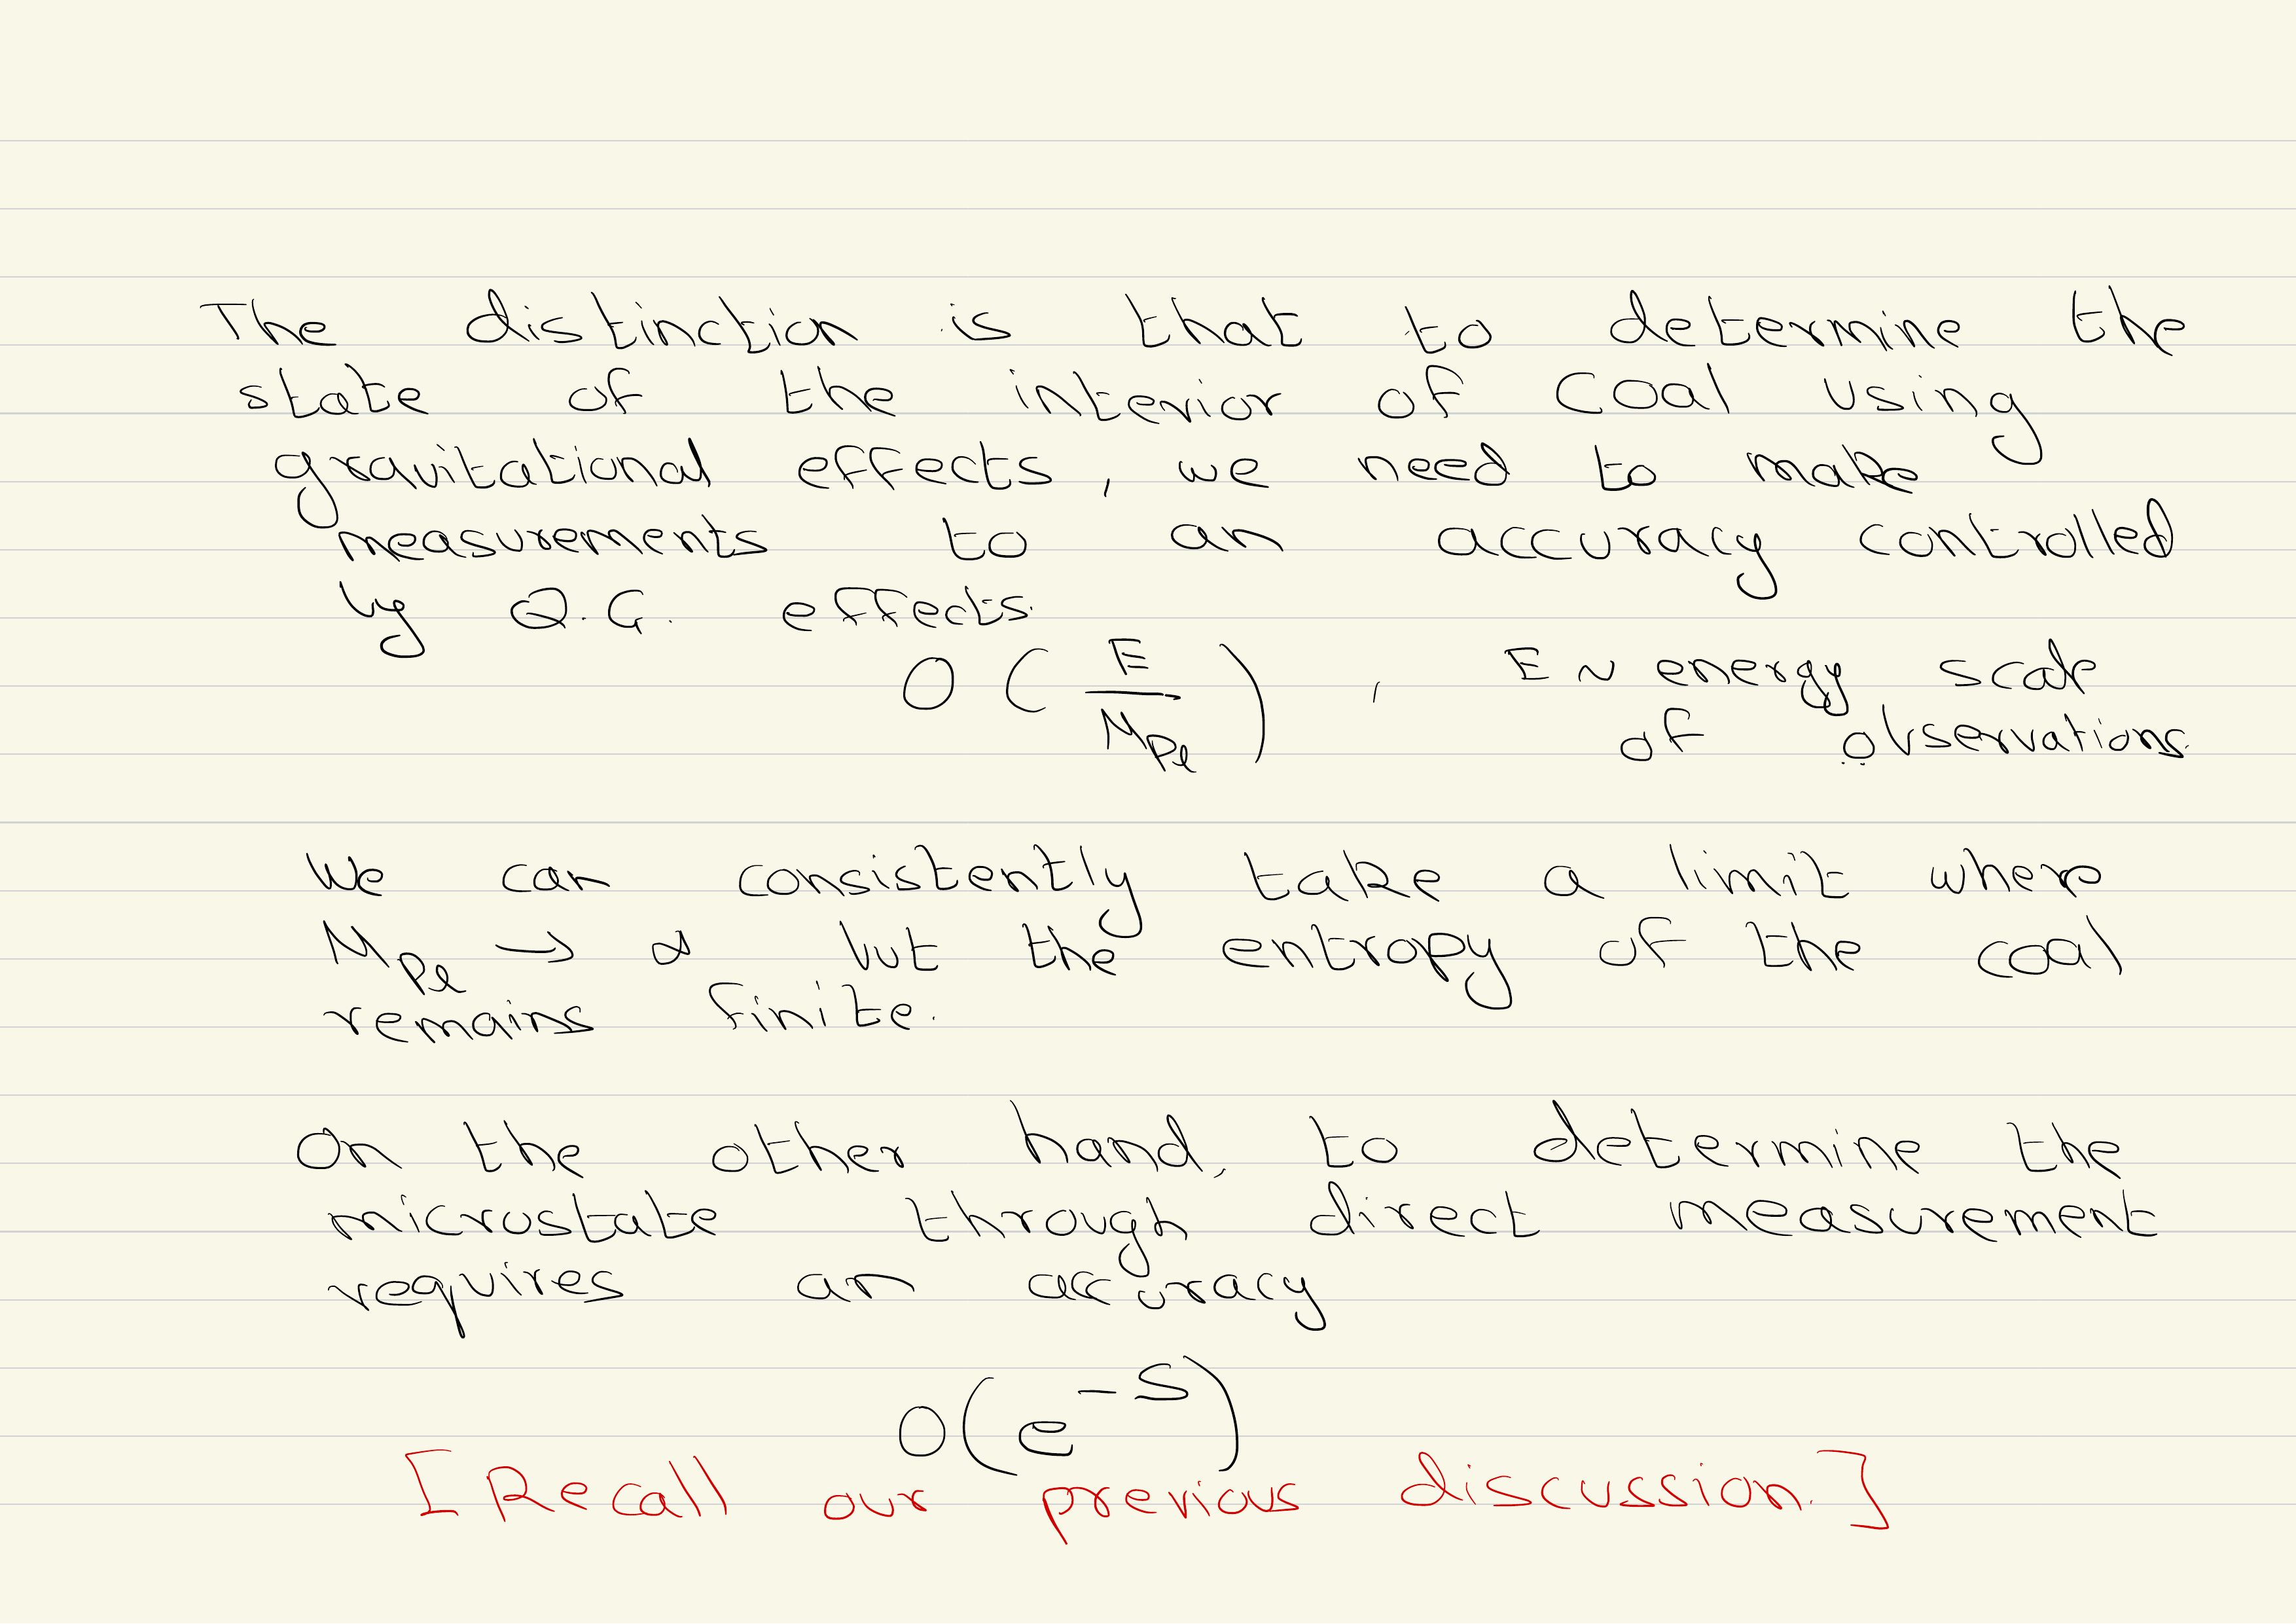 The distinction is that to determine the
state of the interior of coal using
gravitational effects, we need to make
measurements to an accuracy controlled
by Q.G. effects.
O(E/M_Pl), E ~ energy scale
of observations.
We can consistently take a limit where
M_Pl → ∞ but the entropy of the coal
remains finite.
On the other hand, to determine the
microstate through direct measurement
requires an accuracy
O(e^{-S})
[Recall our previous discussion.]